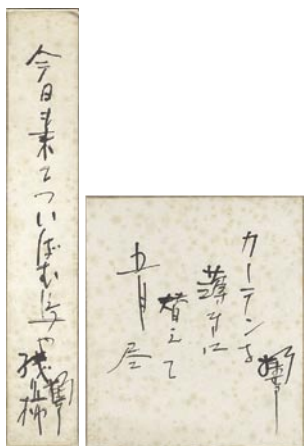 今日来てついばむ鳥や残り柿
カーテンを
薄手に
替えて
五月尽